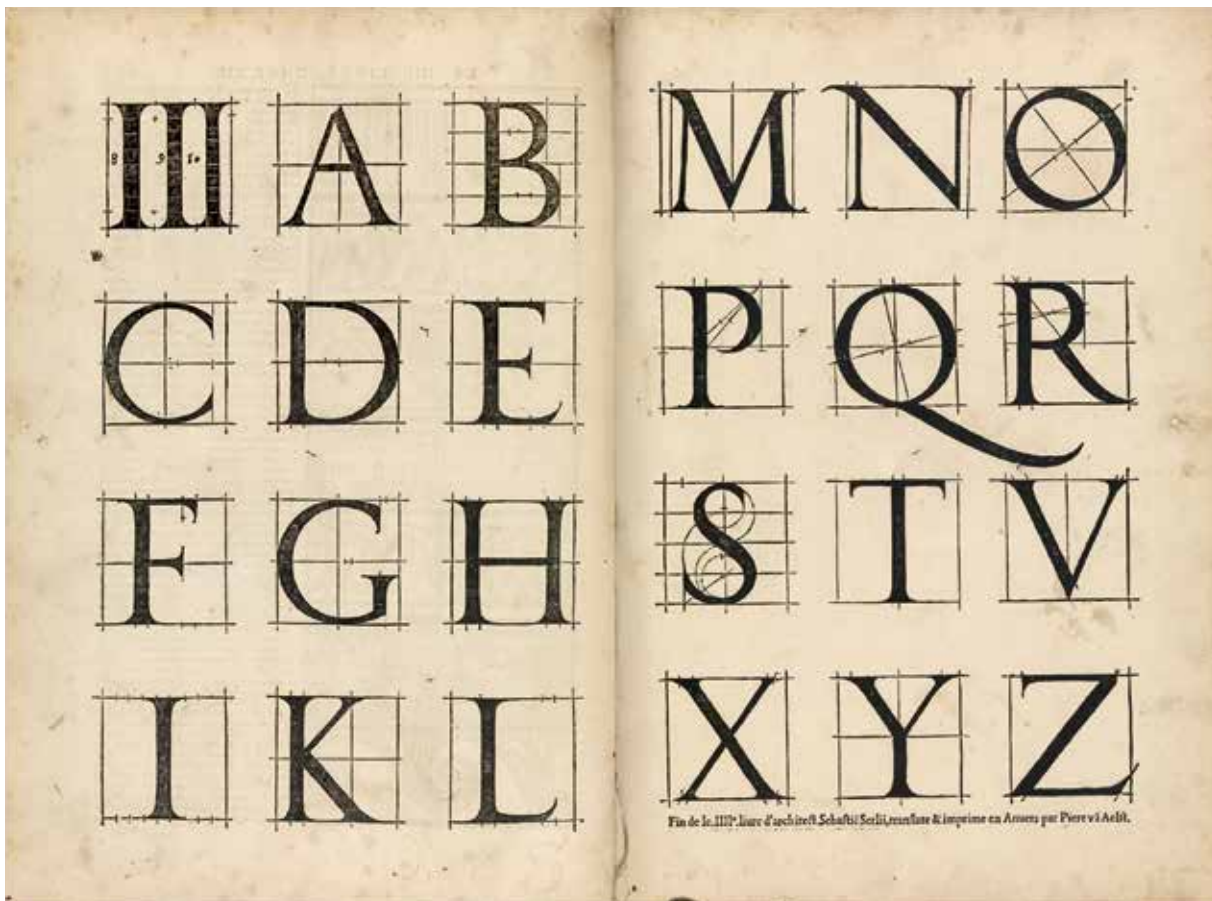 8 9 10 A B
C D E
F G H
I K L
M N O
P Q R
S T V
X Y Z
Fin de le.IIIIᵉ.liure d'architect.Sebastiē Serlii,translate & imprime en Anuers par Piere vā Aelst.